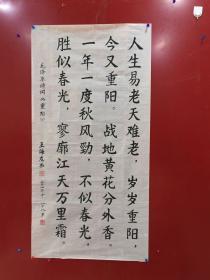 人生易老天难老，岁岁重阳，
今又重阳。战地黄花分外香。
一年一度秋风劲，不似春光。
胜似春光，寥廓江天万里霜。
毛泽东诗词《重阳》
王海友书